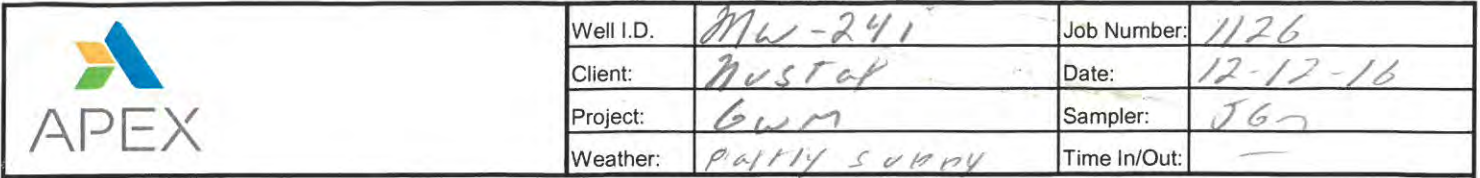 APEX
Well I.D. MW-24i Job Number: 1126
Client: NuStar Date: 12-12-16
Project: GWM Sampler:
Weather: Partly sunny Time In/Out: —